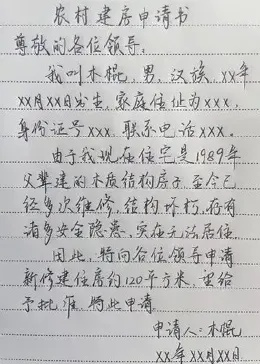 农村建房申请书
尊敬的各位领导:
我叫木棍,男,汉族,XX年
XX月XX日出生,家庭住址为XXX,
身份证号XXX,联系电话XXX。
由于我现在住宅是1989年
父辈建的木质结构房子,至今已
经多次维修,结构坏朽,存有
诸多安全隐患,实在无法居住
因此,特向各位领导申请
新修建住房约120平方米,望给
予批准,特此申请
申请人:木棍
XX年XX月XX日